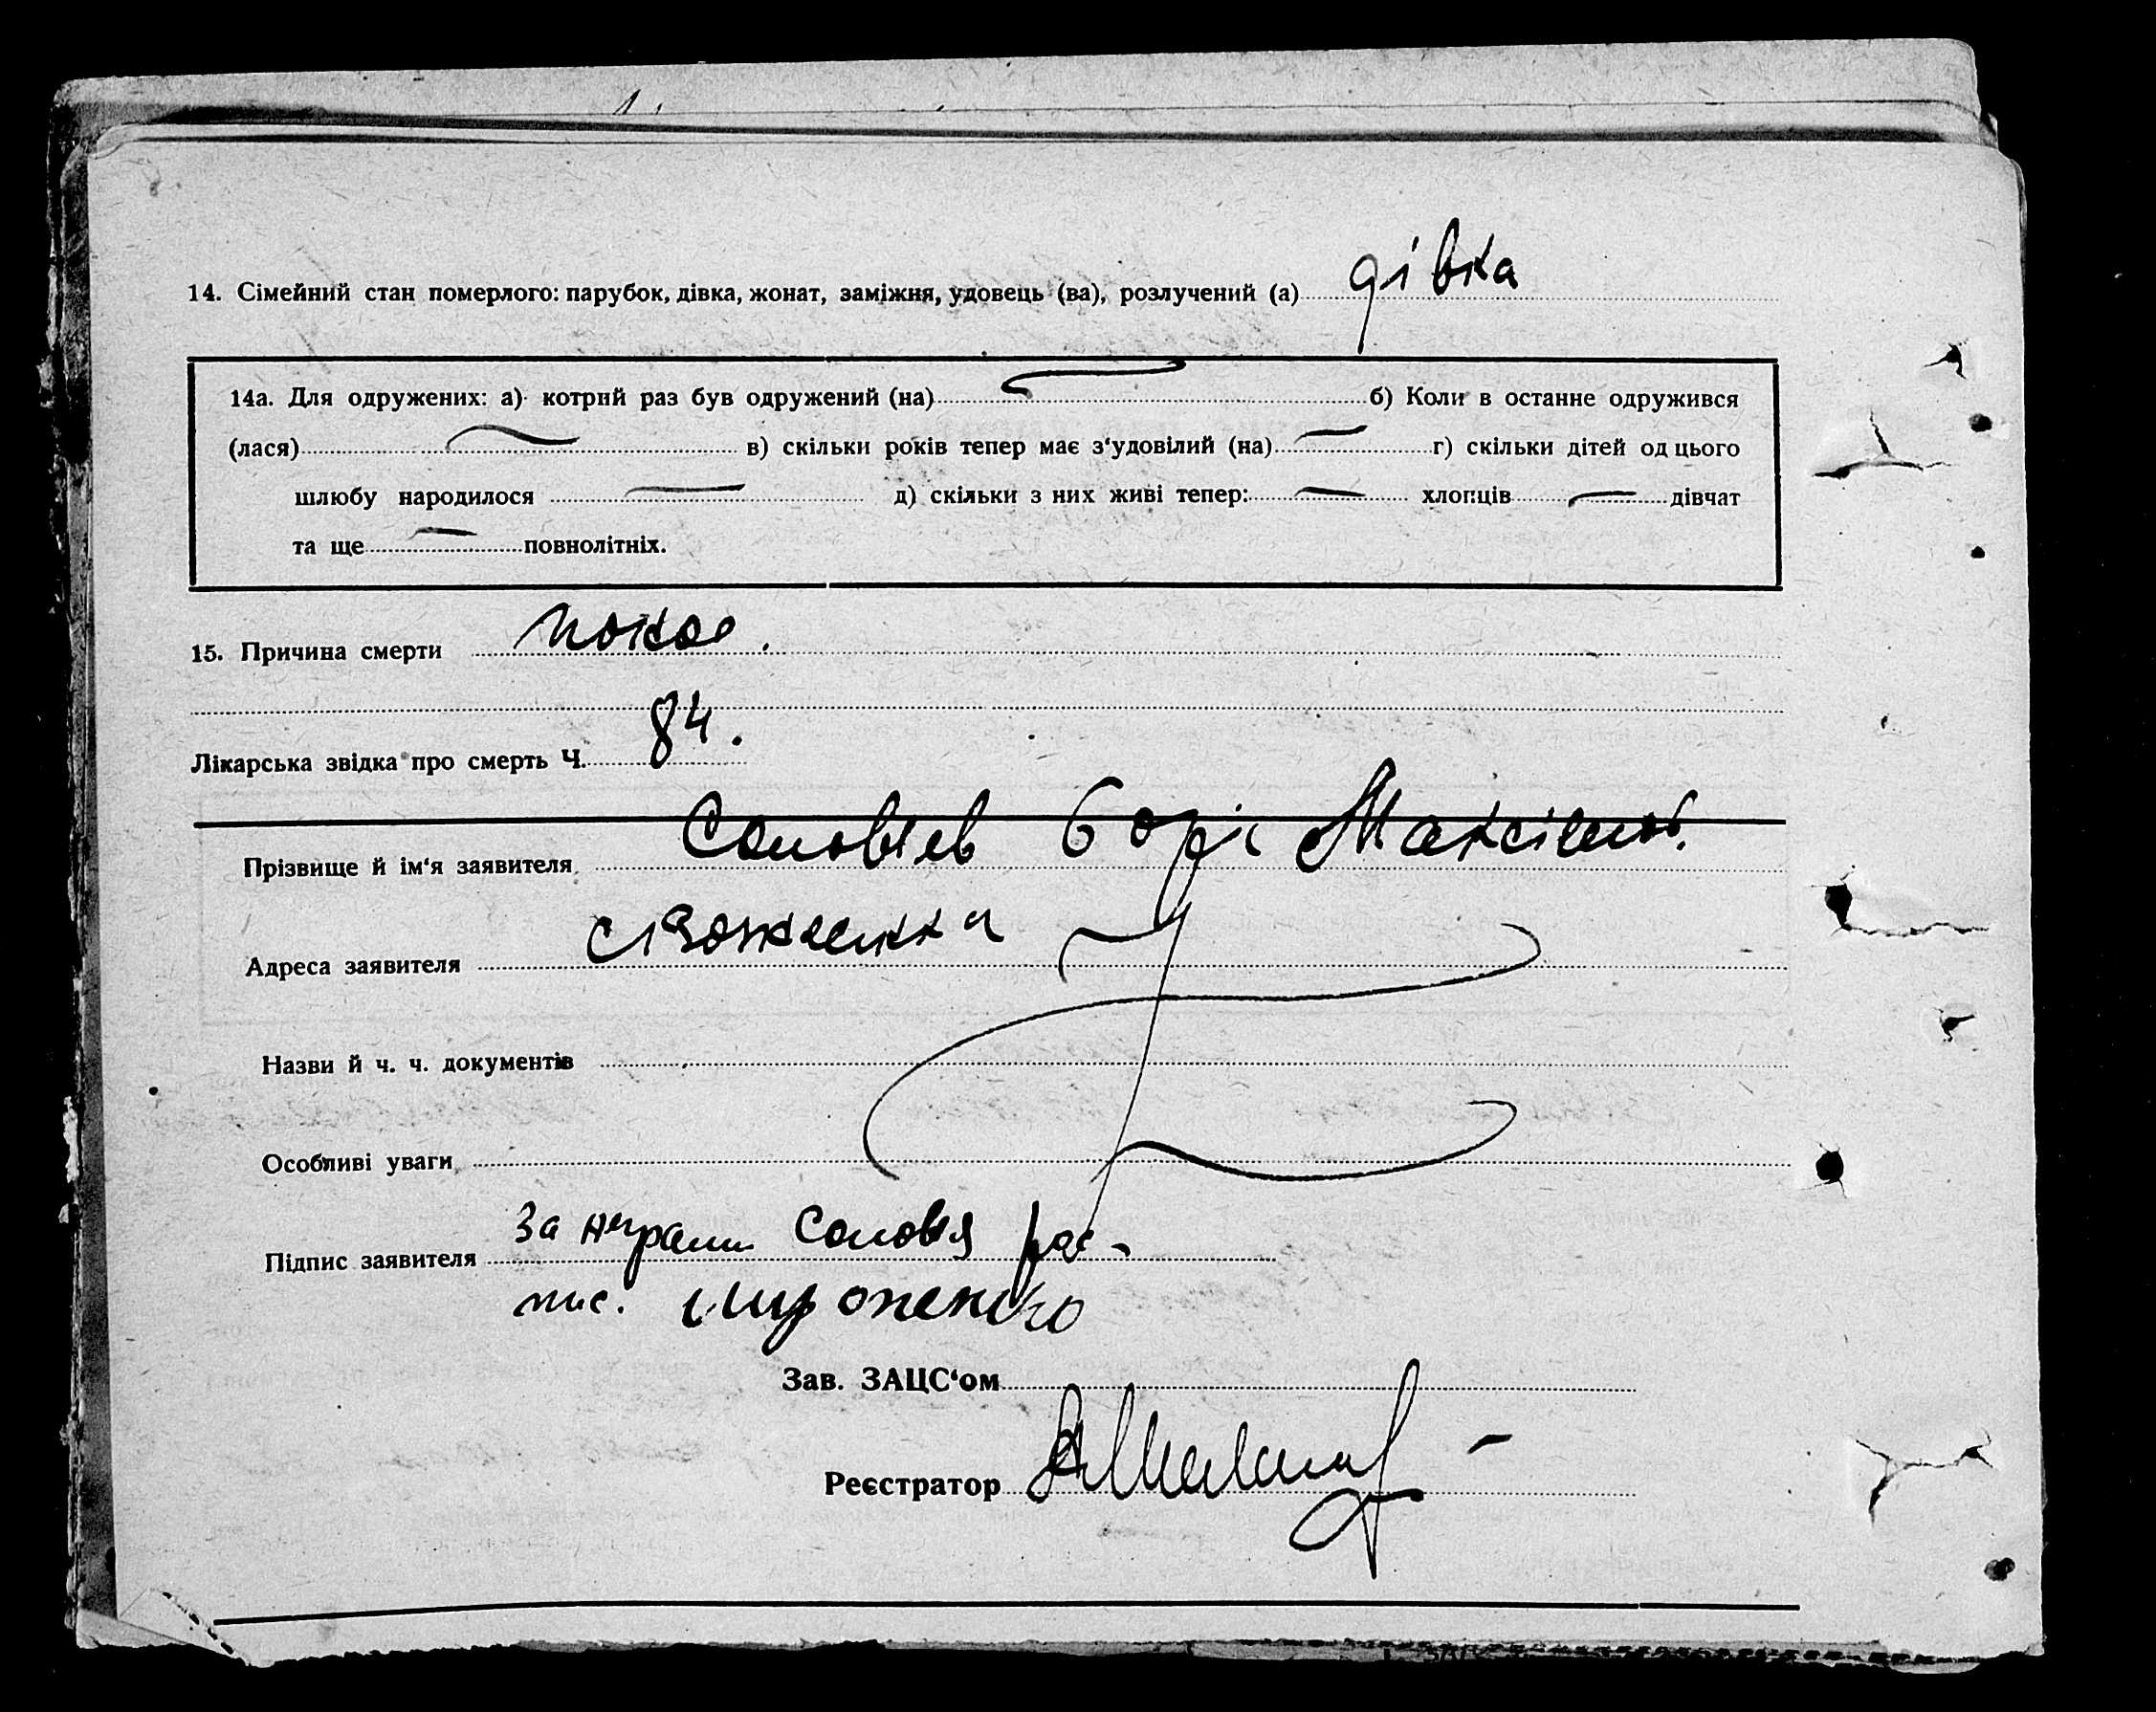 14. Сімейний стан померлого: парубок, дівка, жонат, заміжня, удовець (ва), розлучений (а) дівка
14а. Для одружених: а) котрий раз був одружений (на) б) Коли в останне одружився
(лася) в) скільки років тепер має з'удовілий (на) г) скільки дітей од цього
шлюбу народилося д) скільки з них живі тепер: хлопців дівчат
та ще повнолітніх.
15. Причина смерти
Лікарська звідка про смерть Ч. 84.
Прізвище й ім'я заявителя Соловьев
Адреса заявителя
Назви й ч. ч. документів
Особливі уваги
Підпис заявителя За неграм. Соловья рас-
пис. Мироненко
Зав. ЗАЦС'ом
Реєстратор